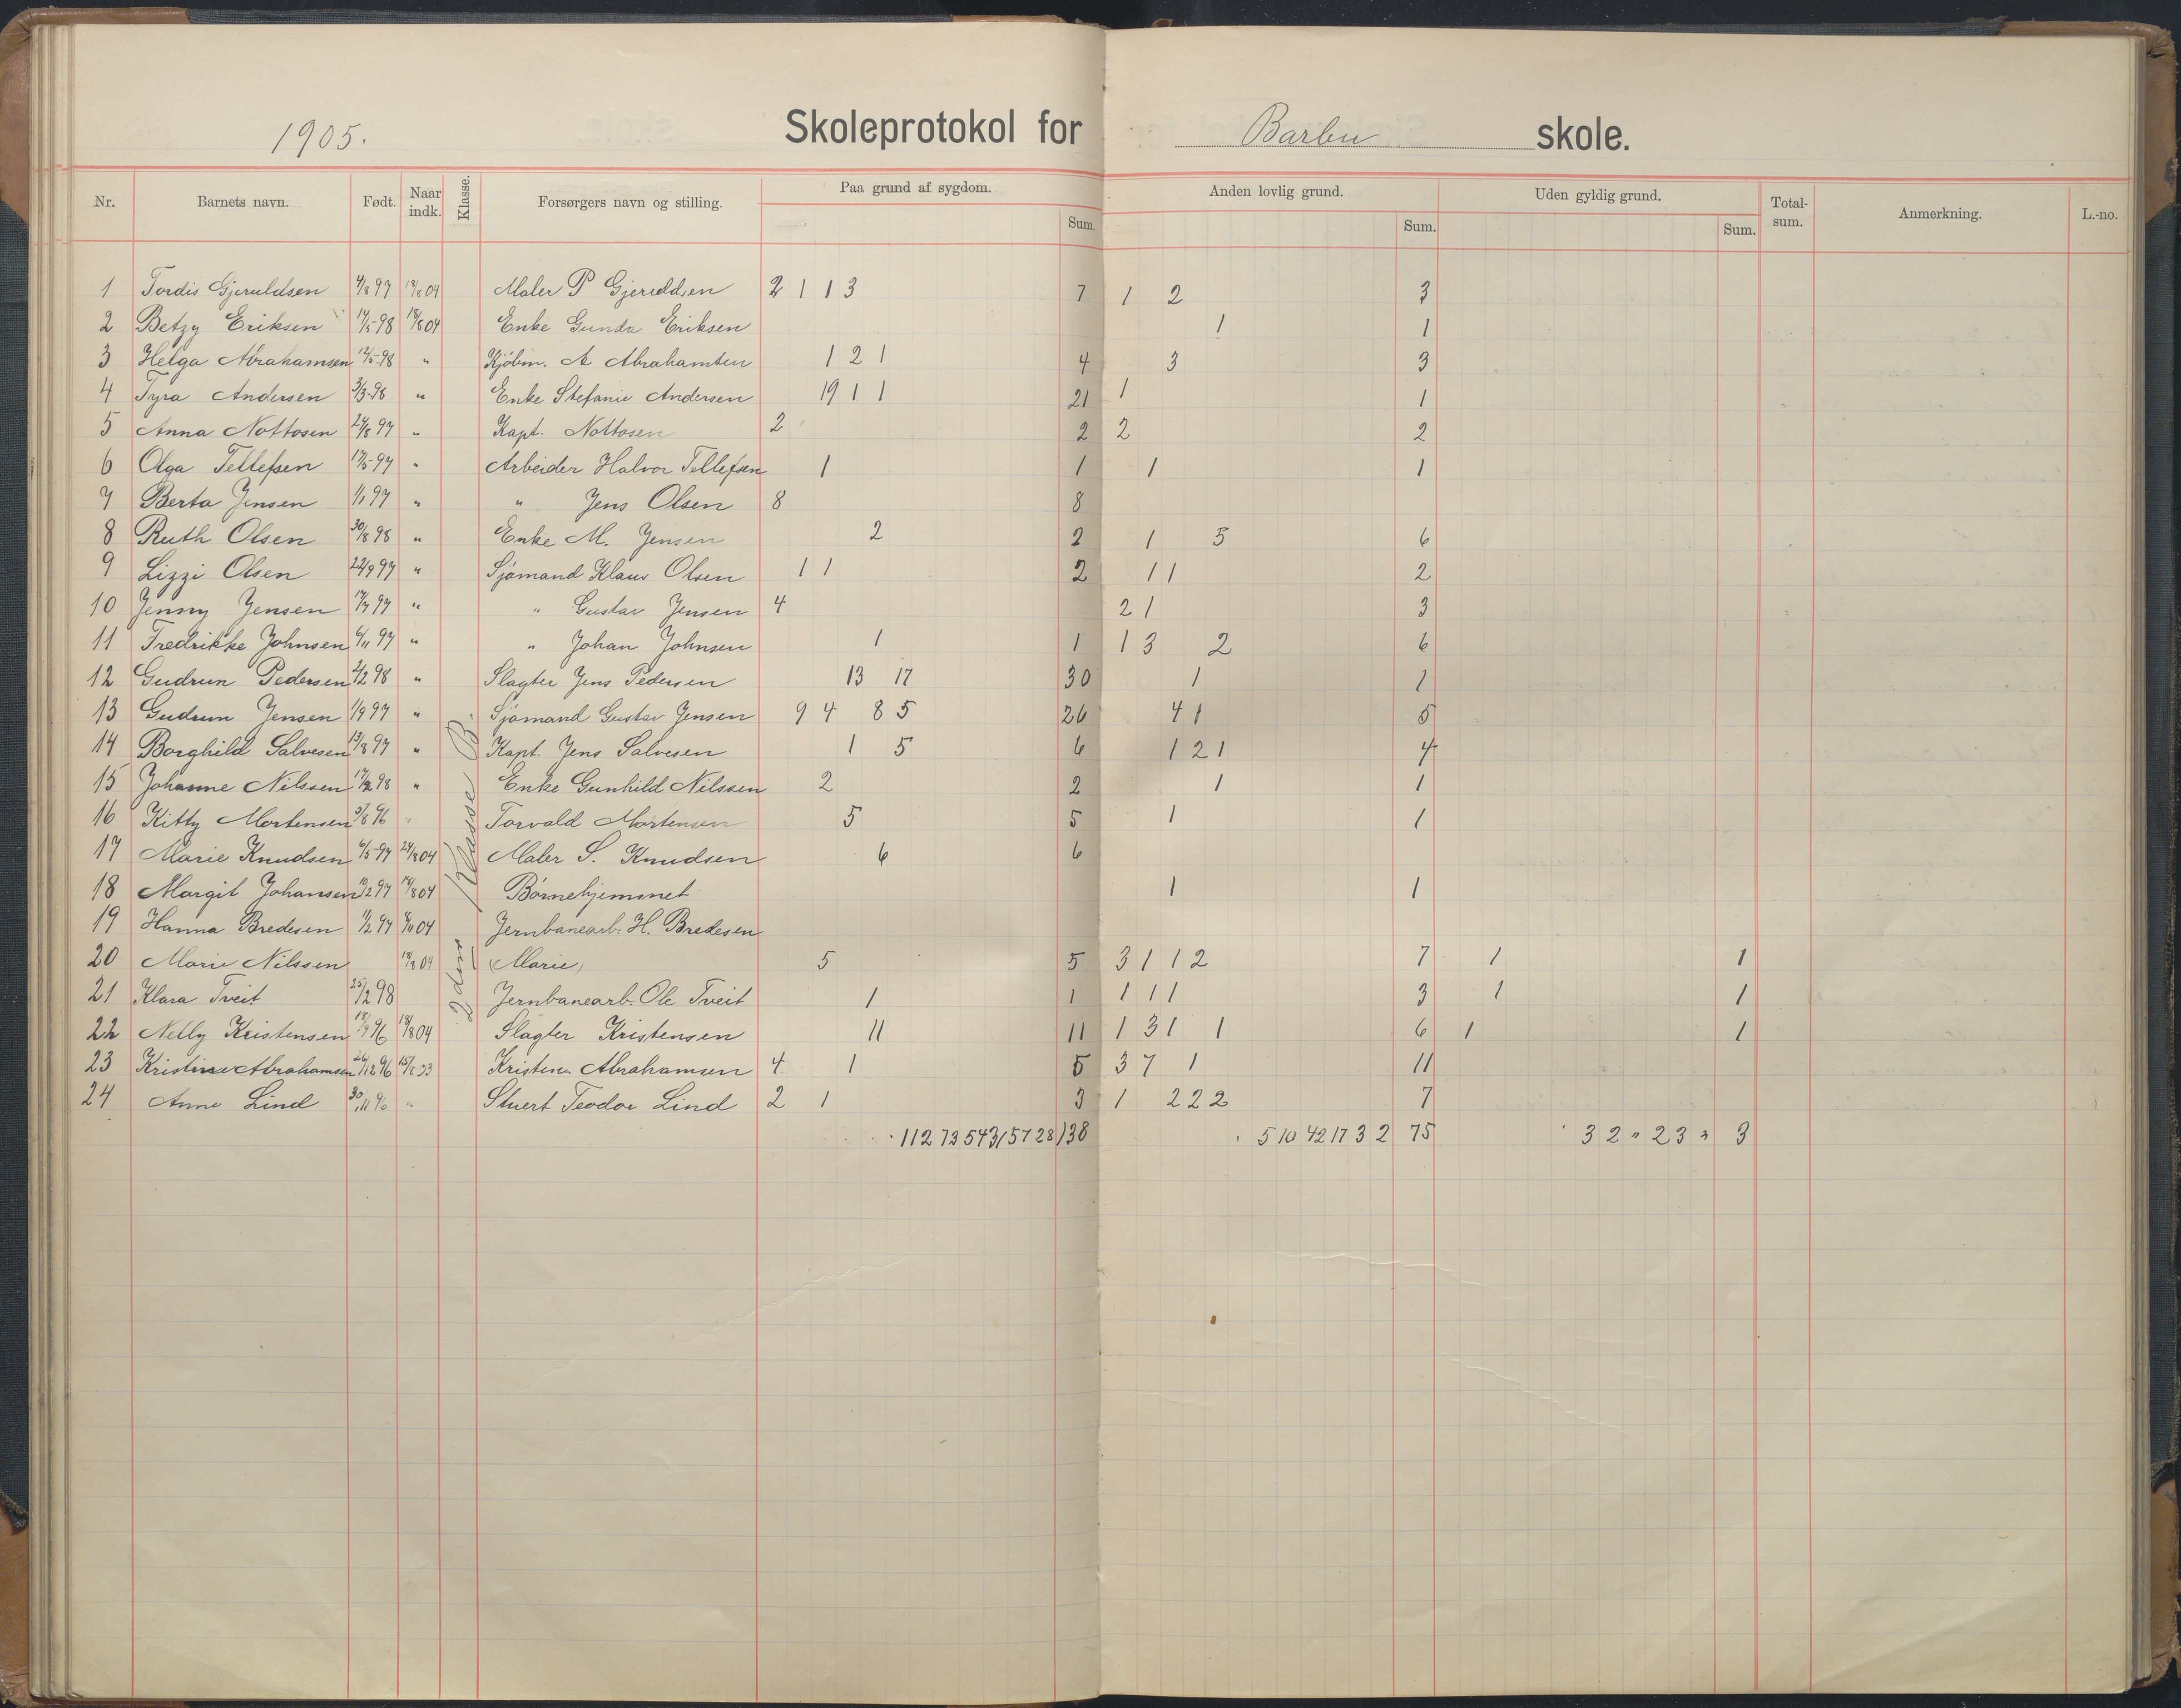 1905. Skoleprotokol for Barbu skole.
Nr. Barnets navn. Født. Naar indk. Klasse. Forsørgers navn og stilling. Paa grund af sygdom. Sum. Anden lovlig grund. Sum. Uden gyldig grund. Sum. Total-sum. Anmerkning. L.-no.
2den Klasse B.
1 Tordis Gjeruldsen 4/8 97 18/8 04 Maler P Gjeruldsen 2 1 1 3 7 1 2 3
2 Betzy Eriksen 14/5 98 18/8 04 Enke Gunda Eriksen 1 1
3 Helga Abrahamsen 12/5-98 " Kjöbm. A Abrahamsen 1 2 1 4 3 3
4 Tyra Andersen 3/3-98 " Enke Stefanie Andersen 19 1 1 21 1 1
5 Anna Nottosen 24/8 97 " Kapt. Nottosen 2 2 2 2
6 Olga Tellefsen 17/5-97 " Arbeider Halvor Tellefsen 1 1 1 1
7 Berta Jensen 1/1 97 " " Jens Olsen 8 8
8 Ruth Olsen 30/8 98 " Enke M. Jensen 2 2 1 5 6
9 Lizzi Olsen 22/9 97 " Sjømand Klaus Olsen 1 1 2 1 1 2
10 Jenny Jensen 17/7 97 " " Gustav Jensen 4 2 1 3
11 Fredrikke Johnsen 6/11 97 " " Johan Johnsen 1 1 1 3 2 6
12 Gudrun Pedersen 2/2 98 " Slagter Jens Pedersen 13 17 30 1 1
13 Gudrun Jensen 1/9 97 " Sjømand Gustav Jensen 9 4 8 5 26 4 1 5
14 Borghild Salvesen 13/8 97 " Kapt. Jens Salvesen 1 5 6 1 2 1 4
15 Johanne Nilssen 17/2 98 " Enke Gunhild Nilssen 2 2 1 1
16 Kitty Mortensen 96 " Torvald Mortensen 5 5 1 1
17 Marie Knudsen 6/5-97 24/8 04 Maler S. Knudsen 6 6
18 Margit Johansen 10/2 97 18/8 04 Børnehjemmet 1 1
19 Hanna Bredesen 1/2 97 8/11 04 Jernbanearb. H. Bredesen
20 Marie Nilssen 18/8 04 (Marie) 5 5 3 1 1 2 7 1 1
21 Klara Tveit 25/2 98 Jernbanearb. Ole Tveit 1 1 1 1 1 3 1 1
22 Nelly Kristensen 96 18/8 04 Slagter Kristensen 11 11 1 3 1 1 6 1 1
23 Kristine Abrahamsen 26/12 96 15/8 03 Kristen Abrahamsen 4 1 5 3 7 1 11
24 Anne Lind 30/11 96 " Stuert Teodor Lind 2 1 3 1 2 2 2 7
138 5 10 42 17 3 2 75 3 2 " 2 3 " 3